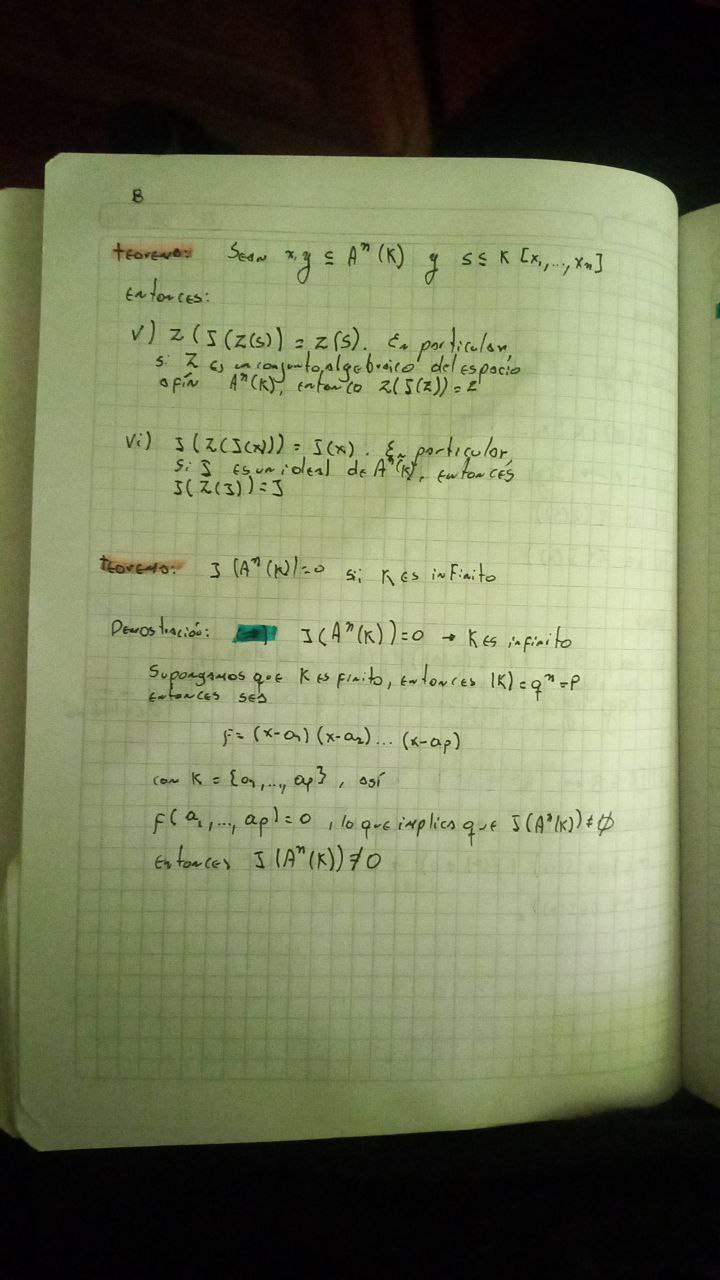 8
teorema: Sean x,y ⊆ Aⁿ(K) y S ⊆ K[x₁,...,xₙ]
Entonces:
v) Z(J(Z(S)) = Z(S). En particular,
si Z es un conjunto algebraico del espacio
afín Aⁿ(K), entonces Z(J(Z)) = Z
vi) J(Z(J(x))) = J(x). En particular,
si J es un ideal de Aⁿ(K), entonces
J(Z(J)) = J
teorema: J(Aⁿ(K)) = 0 sii K es infinito
Demostración: (→) J(Aⁿ(K)) = 0 → K es infinito
Supongamos que K es finito, entonces |K| = qⁿ = p
entonces sea
f = (x-a₁)(x-a₂)...(x-aₚ)
con K = {a₁,...,aₚ}, así
f(a₁,...,aₚ) = 0, lo que implica que J(Aⁿ(K)) ≠ ∅
Entonces J(Aⁿ(K)) ≠ 0